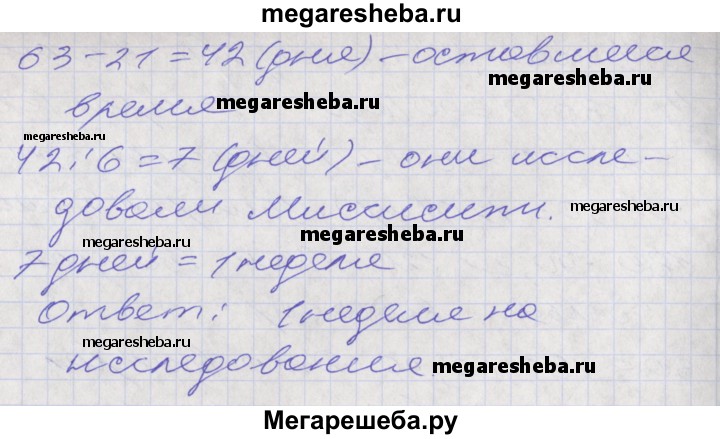 megaresheba.ru
63-21=42 (дня) - оставшееся
megaresheba.ru
время megaresheba.ru
megaresheba.ru
42:6=7 (дней) - они иссле-
довали Миссисипи. megaresheba.ru
megaresheba.ru megaresheba.ru
7 дней = 1 неделя
Ответ: 1 неделя на
megaresheba.ru
исследования megaresheba.ru
Мегарешеба.ру